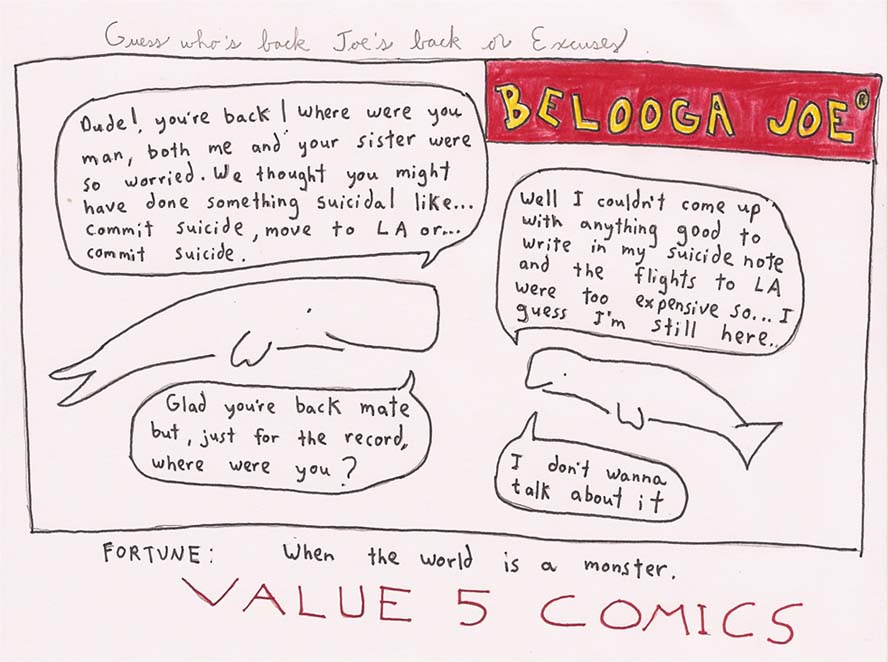 Guess who's back Joe's back or Excuses
BELOOGA JOE®
Dude!, you're back! where were you
man, both me and your sister were
so worried. We thought you might
have done something suicidal like...
commit suicide, move to LA or...
commit suicide.
Well I couldn't come up
with anything good to
write in my suicide note
and the flights to LA
were too expensive so... I
guess I'm still here..
Glad you're back mate
but, just for the record,
where were you?
I don't wanna
talk about it
FORTUNE: When the world is a monster.
VALUE 5 COMICS